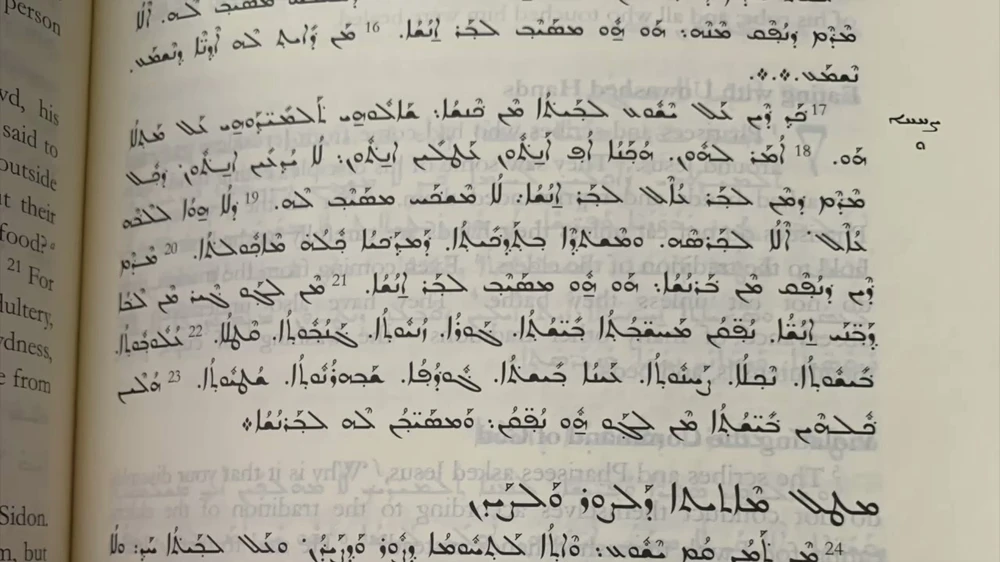 person
his
said to
outside
their
food?
21 For
dultery,
ydness,
from
Sidon.
but
ܡܣܝܒ ܠܗ. ܐܠܐ
ܡܕܡ ܕܢܦܩ ܡܢܗ: ܗܘ ܗܘ ܡܣܝܒ ܠܒܪ ܐܢܫܐ. 16 ܡܢ ܕܐܝܬ ܠܗ ܐܕ̈ܢܐ ܕܢܫܡܥ.
ܢܫܡܥ.܀܀
17 ܟܕ ܕܝܢ ܥܠ ܝܫܘܥ ܠܒܝܬܐ ܡܢ ܟܢܫܐ: ܫܐܠܘܗܝ ܬܠܡܝܕ̈ܘܗܝ ܥܠ ܡܬܠܐ
ܗܘ. 18 ܐܡܪ ܠܗܘܢ. ܗܟܢܐ ܐܦ ܐܢܬܘܢ ܥܛܠܝܢ ܐܢܬܘܢ: ܠܐ ܝܕܥܝܢ ܐܢܬܘܢ: ܕܟܠ
ܡܕܡ ܕܡܢ ܠܒܪ ܥܐܠ ܠܒܪ ܐܢܫܐ: ܠܐ ܡܫܟܚ ܡܣܝܒ ܠܗ. 19 ܕܠܐ ܗܘܐ ܠܠܒܗ
ܥܐܠ ܐܠܐ ܠܟܪܣܗ. ܘܡܫܬܕܐ ܒܬܕܟܝܬܐ. ܘܡܕܟܝܐ ܟܠܗ ܡܐܟܘܠܬܐ. 20 ܡܕܡ
ܕܝܢ ܕܢܦܩ ܡܢ ܒܪܢܫܐ: ܗܘ ܗܘ ܡܣܝܒ ܠܒܪ ܐܢܫܐ. 21 ܡܢ ܠܓܘ ܓܝܪ ܡܢ ܠܒܐ
ܕܒܢ̈ܝ ܐܢܫܐ. ܢܦܩ̈ܢ ܡܚܫ̈ܒܬܐ ܒܝܫ̈ܬܐ. ܓܘܪܐ. ܙܢܝܘܬܐ. ܓܢܒܘܬܐ. ܩܛܠܐ. 22 ܥܠܘܒܘܬܐ.
ܒܝܫܘܬܐ. ܢܟܠܐ. ܨܚܢܘܬܐ. ܥܝܢܐ ܒܝܫܬܐ. ܓܘܕܦܐ. ܫܒܗܪܢܘܬܐ. ܫܛܝܘܬܐ. 23 ܗܠܝܢ
ܟܠܗܝܢ ܒܝܫ̈ܬܐ ܡܢ ܠܓܘ ܗܘ ܢܦܩ̈ܢ: ܘܡܣܝ̈ܒܢ ܠܗ ܠܒܪܢܫܐ܀
ܡܛܠ ܡܐܬܝܬܐ ܕܠܨܘܪ ܘܠܨܝܕܢ
24 ܡܢ ܬܡܢ ܩܡ ܝܫܘܥ: ܘܐܬܐ ܠܬܚܘܡܐ ܕܨܘܪ ܘܕܨܝܕܢ: ܘܥܠ ܠܒܝܬܐ ܚܕ: ܘܠܐ